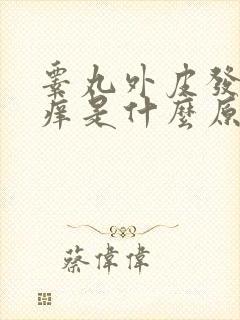 睾丸外皮發
痒是什麼原
蔡偉偉